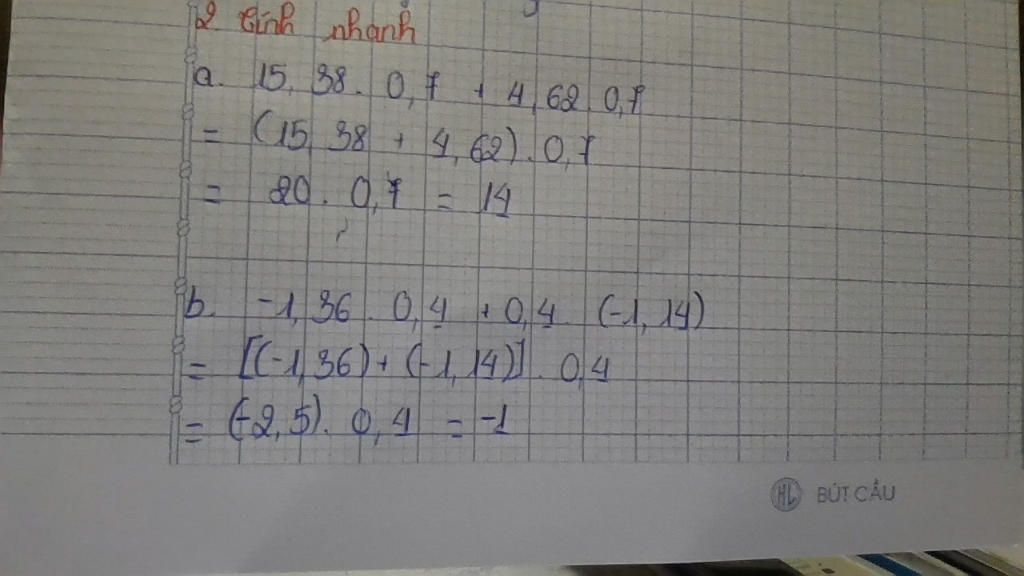 2 tính nhanh
a. 15,38. 0,7 + 4,62. 0,7
= (15,38 + 4,62). 0,7
= 20. 0,7 = 14
b. -1,36. 0,4 + 0,4. (-1,14)
= [(-1,36)+(-1,14)]. 0,4
= (-2,5). 0,4 = -1
HL BÚT CẦU